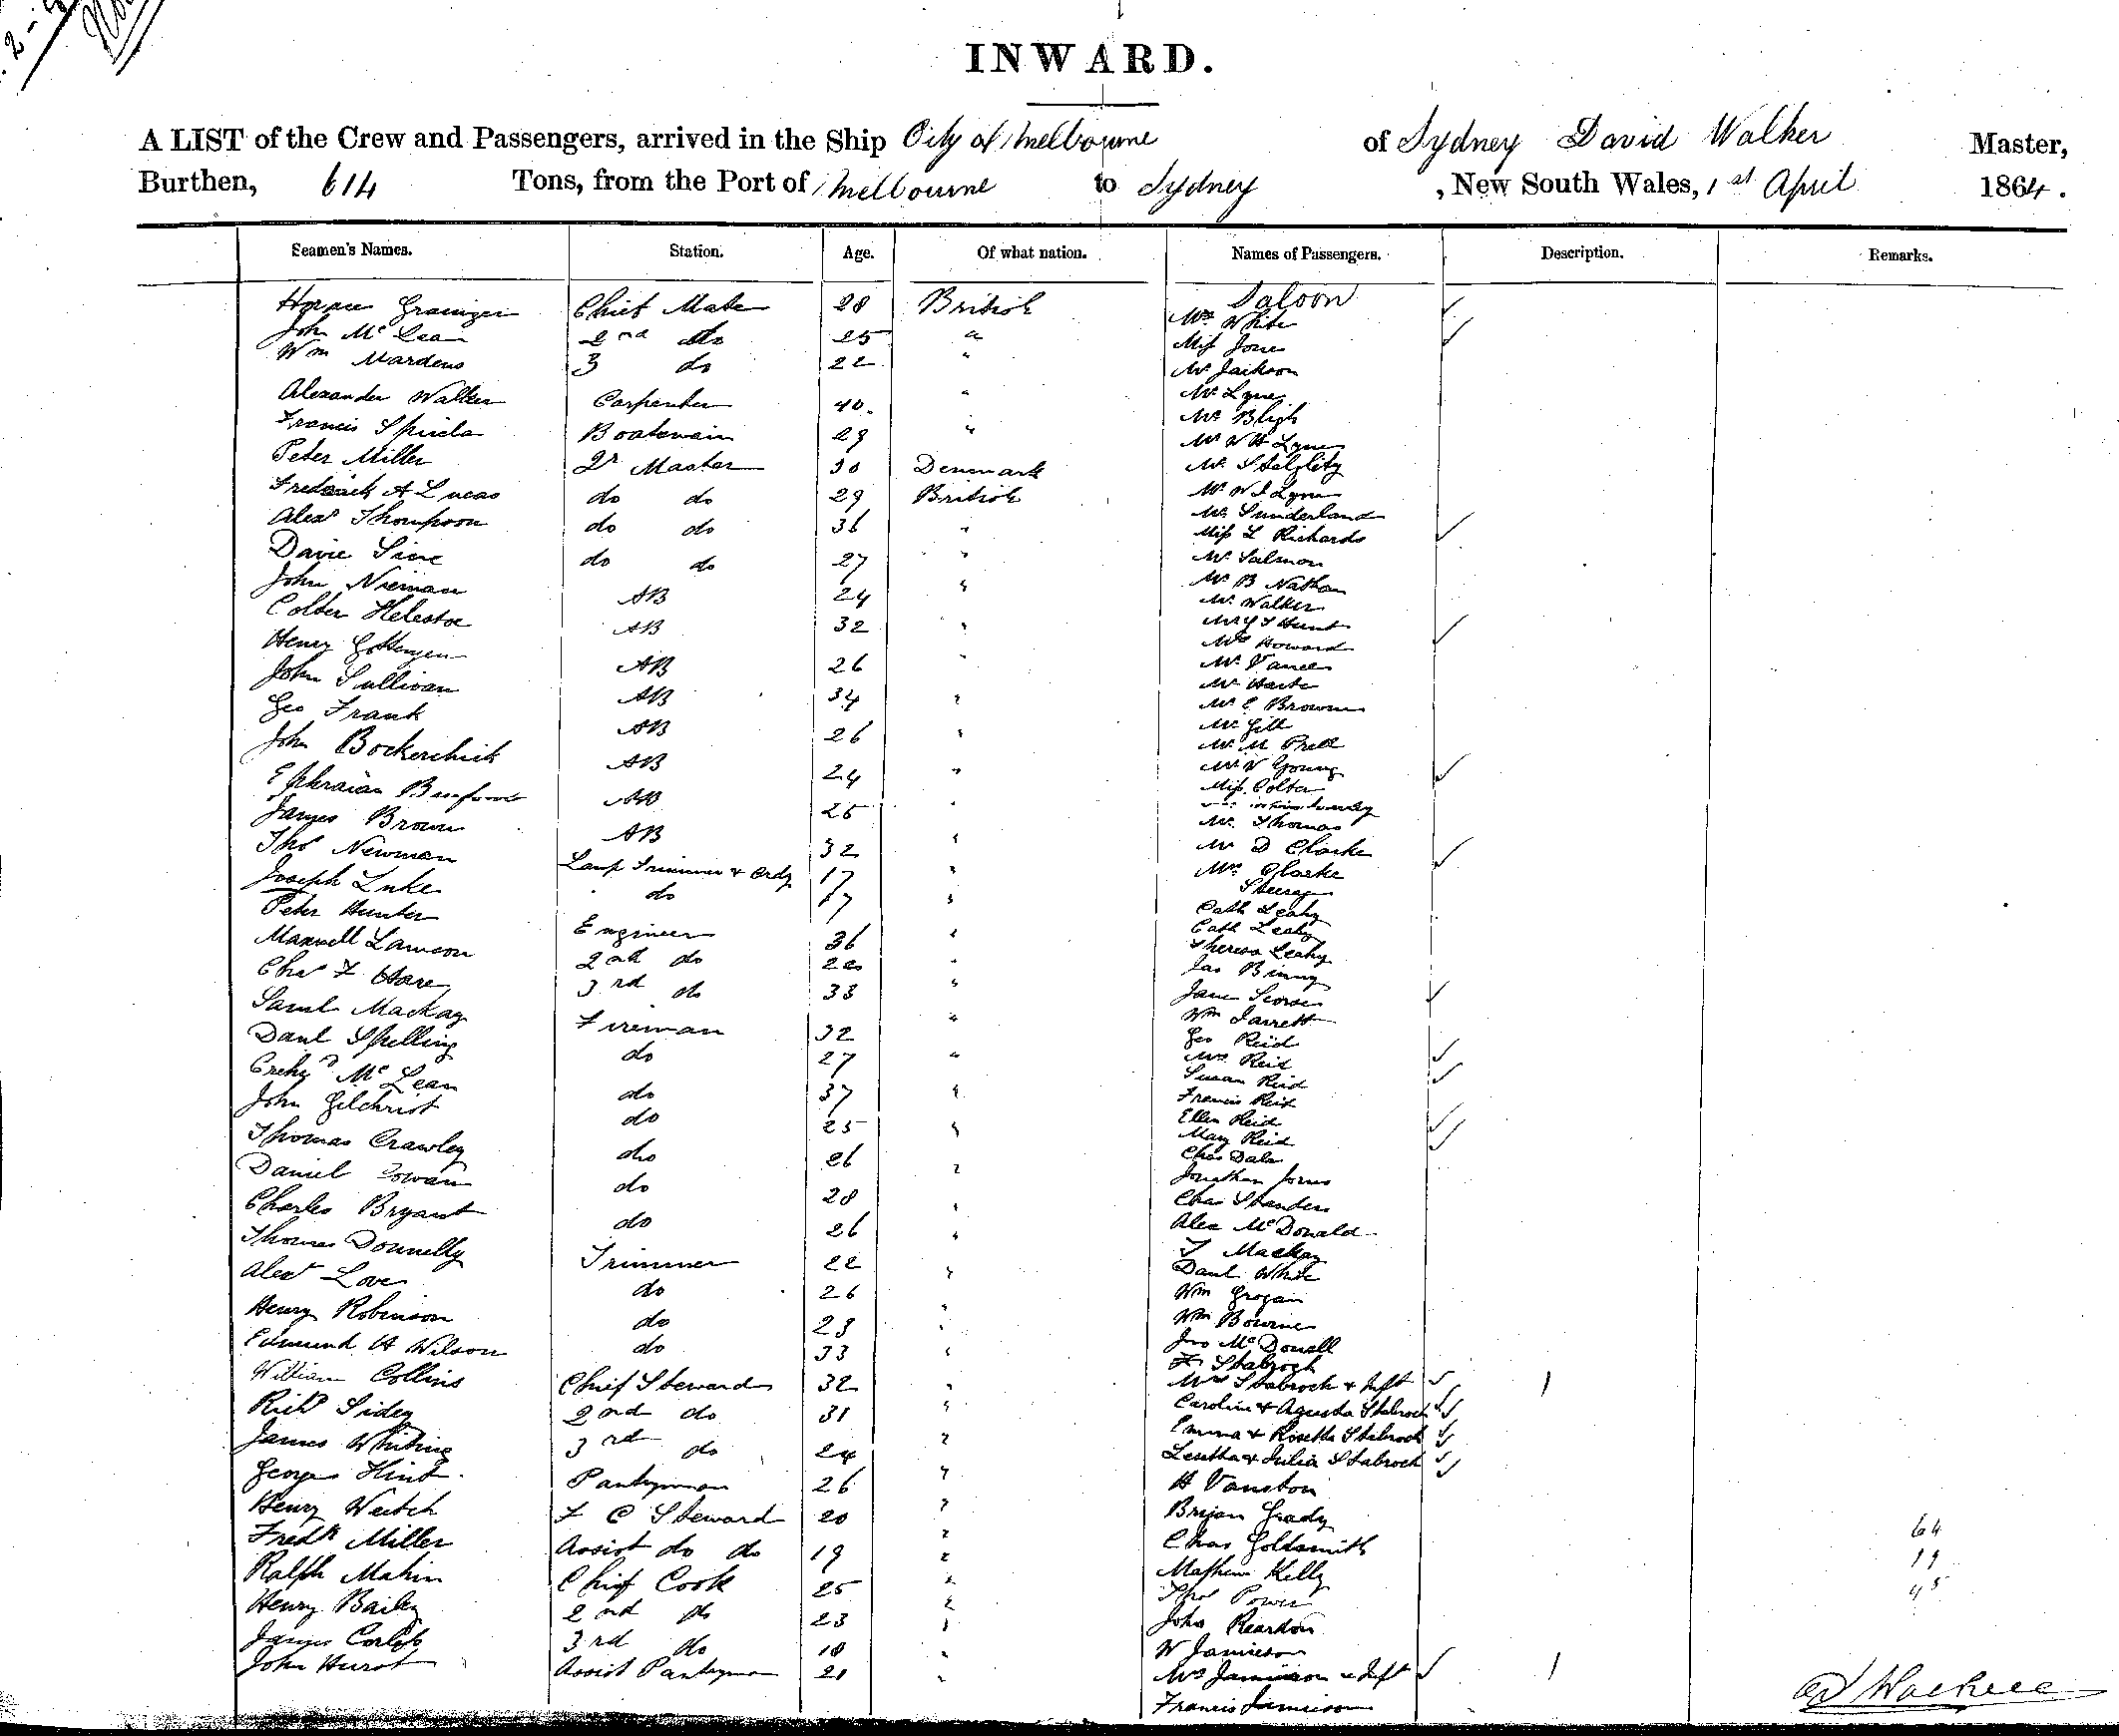 INWARD.
A LIST of the Crew and Passengers, arrived in the Ship City of Melbourne of Sydney David Walker Master,
Burthen, 614 Tons, from the Port of Melbourne to Sydney, New South Wales, 1st April 1864.
Seamen's Names. Station. Age. Of what nation. Names of Passengers. Description. Remarks.
Saloon
Horace Grainger Chief Mate 28 British Mrs White
John McLean 2nd do 25 " Miss Jones
Wm Mardens 3 do 22 " Mr Jackson
Mr Lyne
Alexander Walker Carpenter 40. " Mr Bligh
Francis Boatswain 29 " Mr W H Lyne
Peter Miller Qr Master 30 Denmark Mr
Frederick A Lucas do do 29 British Mr W J Lyne
Mr Sunderland
Alexr Thompson do do 36 " Miss L Richards
David do do 27 " Mr Salmon
John Nieman AB 24 " Mr B Nathan
Mr Walker
Colber AB 32 " Hunt
Mrs Howard
Henry AB 26 " Mr Vance
John Sullivan AB 34 " Mr
Mr E Brown
Geo Frank AB 26 " Mr Gill
Mr M Prell
John AB 24 " Mr W Young
Miss Colter
Ephraim AB 25 "
Mr Thomas
James Brown AB 32 " Mr D Clarke
Thos Newman Lamp Trimmer & Ordy 17 " Mrs Clarke
Steerage
Joseph Luke do 17 " Cath Leahy
Cath Leahy
Peter Hunter Engineer 36 " Theresa Leahy
Maxwell Lawson 2nd do 20 " Jas Binny
Chas F Hare 3rd do 33 " Jane
Wm Jarrett
Saml Mackay Fireman 32 " Geo Reid
Danl Spelling do 27 " Mrs Reid
Susan Reid
McLean do 37 " Francis Reid
John Gilchrist do 25 " Ellen Reid
Mary Reid
Thomas Crawley do 26 " Chas Dale
Jonathan
Daniel Cowan do 28 " Chas Standen
Charles Bryant do 26 " Alex McDonald
T Mackay
Thomas Donnelly Trimmer 22 " Danl White
Alexr Love do 26 " Wm Grogan
Henry Robinson do 23 " Wm Bourne
Jno McDonell
Edmund H Wilson do 33 " F Stabrock
William Collins Chief Steward 32 " Mrs Stabrock & Inft 1
Richd Sidey 2nd do 31 " Caroline & Agusta Stabrock
James Whiting 3rd do 24 " Emma & Rosetta Stabrock
& Julia Stabrock
George Pantryman 26 " H Vanston
Henry Veitch F C Steward 20 " Bryan Grady
Fredk Miller Assist do do 19 " Chas Goldsmith 64
Ralph Mahin Chief Cook 25 " Mathew Kelly 19
Thos Power 45
Henry Bailey 2nd do 23 " John Reardon
James 3rd do 18 " W Jamieson
John Hurst Assist Pantryman 21 " Mrs Jamieson & Inft 1
Francis Jamieson